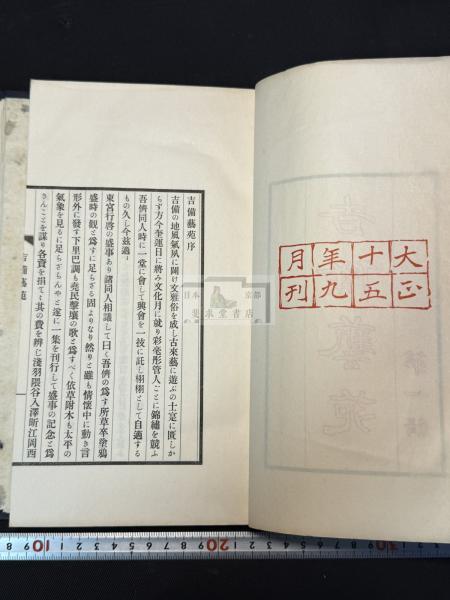 大正
十五
年九
月刊
吉備藝苑序
吉備の地風氣夙に闢け文雅俗を成し古來藝に遊ぶの士寔に匱しか
らず方今奎運日に將み文化月に就り彩毫彤管人ごとに錦繡を競ふ
吾儕同人時に一堂に會して興會を一技に託し栩栩として自適する
もの久し今玆適
東宮行啓の盛事あり諸同人相議して曰く吾儕の爲す所草卒塗鴉
盛時の觀と爲すに足らざる固よりなり然りと雖も情懷中に動き言
形外に發す下里巴調も堯民擊壤の歌と爲すべく依草附木も太平の
氣象を見るに足らざらんやと遂に一集を刊行して盛事の記念と爲
さんことを謀り各資を捐て其の費を辨じ淺羽隈谷入澤昕江岡西
吉備藝苑
日本 京都
斐求堂書店
10 20 30